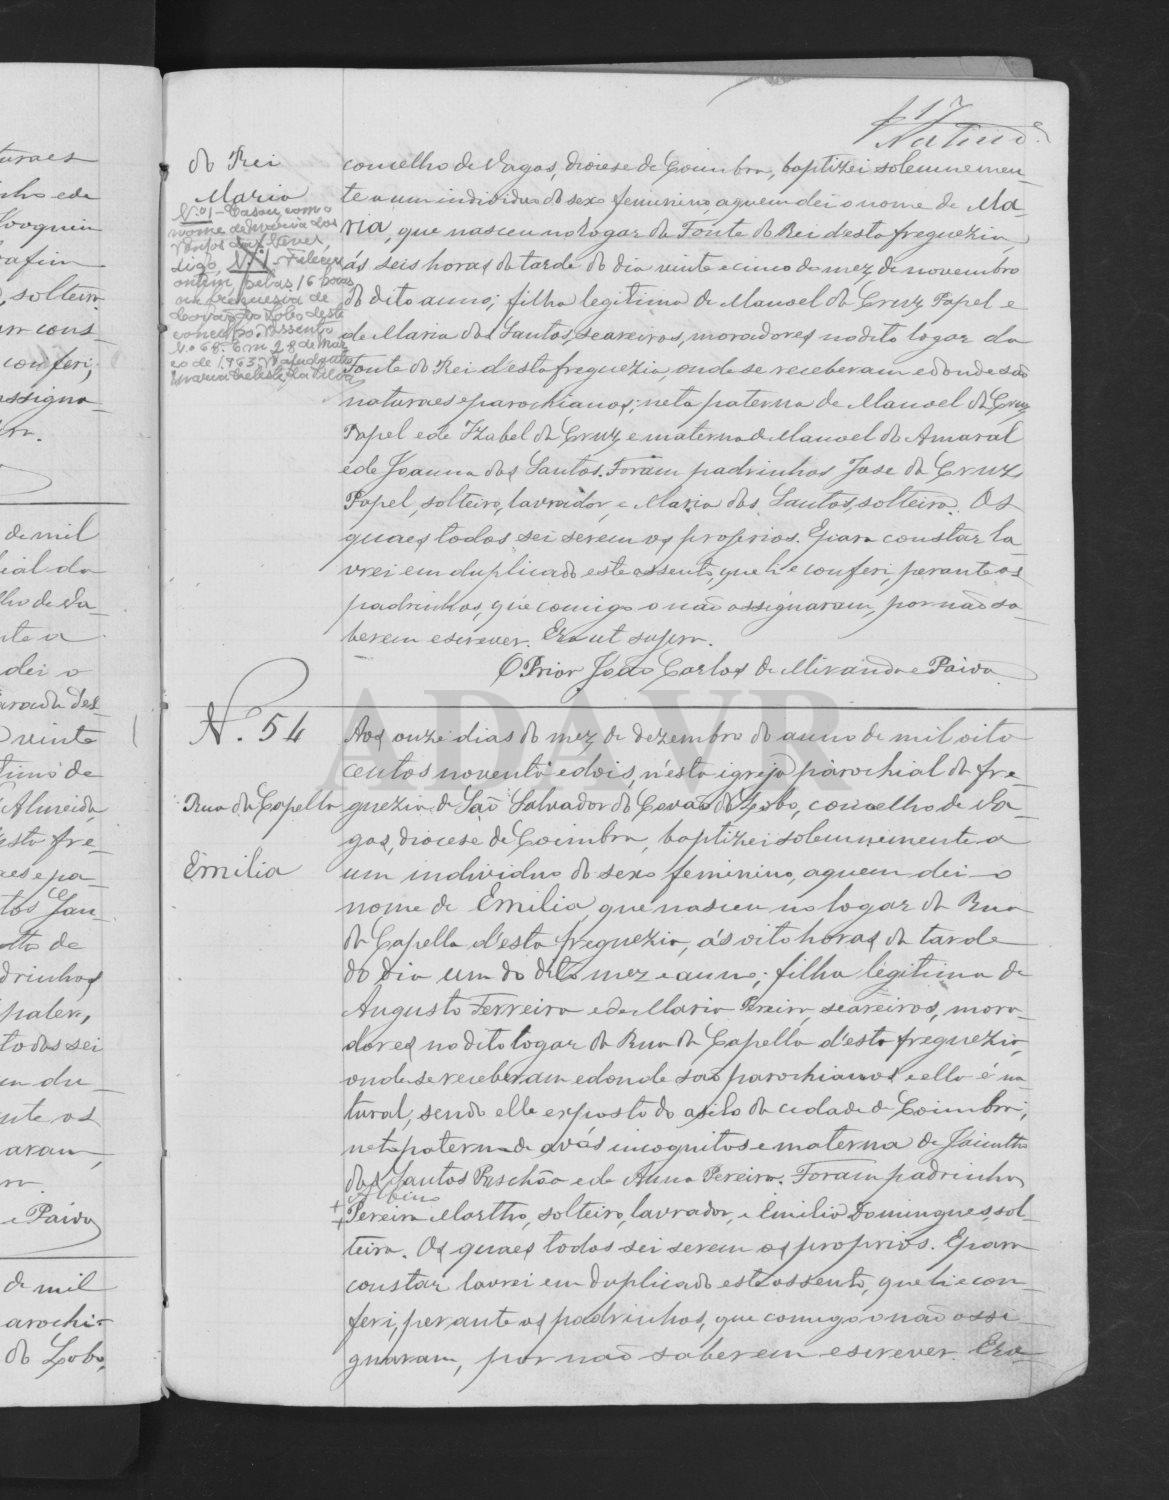 17
do Rei
Maria
N.º 1 - Casou com o
nome de Maria dos
digo, N.º 1 - Faleceu
ontem, pelas 16 horas
na freguesia de
Covão do Lobo, deste
concelho. Assento
N.º 68. Em 28 de Mar
ço de 1963. A ajudante
Maria Celeste da Silva
concelho de Vagos, diocese de Coimbra, baptizei solemnemen-
te a um individuo do sexo feminino, a quem dei o nome de Ma-
ria, que nasceu no logar da Fonte do Rei d'esta freguezia,
ás seis horas da tarde do dia vinte e cinco do mez de novembro
do dito anno; filha legitima de Manoel da Cruz Papel e
de Maria dos Santos, seareiros, moradores no dito logar da
Fonte do Rei d'esta freguezia, onde se receberam e donde são
naturaes e parochianos; neta paterna de Manoel da Cruz
Papel e de Izabel da Cruz e materna de Manoel do Amaral
e de Joanna dos Santos. Foram padrinhos Jose da Cruz
Papel, solteiro, lavrador, e Maria dos Santos, solteira. Os
quaes todos sei serem os proprios. E para constar la-
vrei em duplicado este assento, que li e conferi, perante os
padrinhos, que comigo o não assignaram, por não sa-
berem escrever. Era ut supra.
O Prior João Carlos de Miranda e Paiva
N. 54
Rua da Capella
Emilia
Aos onze dias do mez de dezembro do anno de mil oito
centos noventa e dois, n'esta igreja parochial da fre-
guezia de São Salvador do Covão do Lobo, concelho de Va-
gos, diocese de Coimbra, baptizei solemnemente a
um individuo do sexo feminino, a quem dei o
nome de Emilia, que nasceu no logar da Rua
da Capella d'esta freguezia, ás oito horas da tarde
do dia um do dito mez e anno; filha legitima de
Augusto Ferreira e de Maria Pereira, seareiros, mora-
dores no dito logar da Rua da Capella d'esta freguezia,
onde se receberam e donde são parochianos e ella é na-
tural, sendo elle exposto do asilo da cidade de Coimbra;
neta paterna de avós incognitos e materna de Jacintho
dos Santos Paschão e de Anna Pereira. Foram padrinhos
Albino
Pereira Martho, solteiro, lavrador, e Emilia Domingues, sol-
teira. Os quaes todos sei serem os proprios. E para
constar lavrei em duplicado este assento, que li e con-
feri, perante os padrinhos, que comigo o não assi-
gnaram, por não saberem escrever. Era
ADAVR
turaes
solteira
conferi,
assigna-
de mil
dei o
vinte
timo de
Almeida,
esta fre-
aes e pa-
drinhos
todos sei
nte os
aram,
e Paiva
de mil
arochi-
do Lobo,